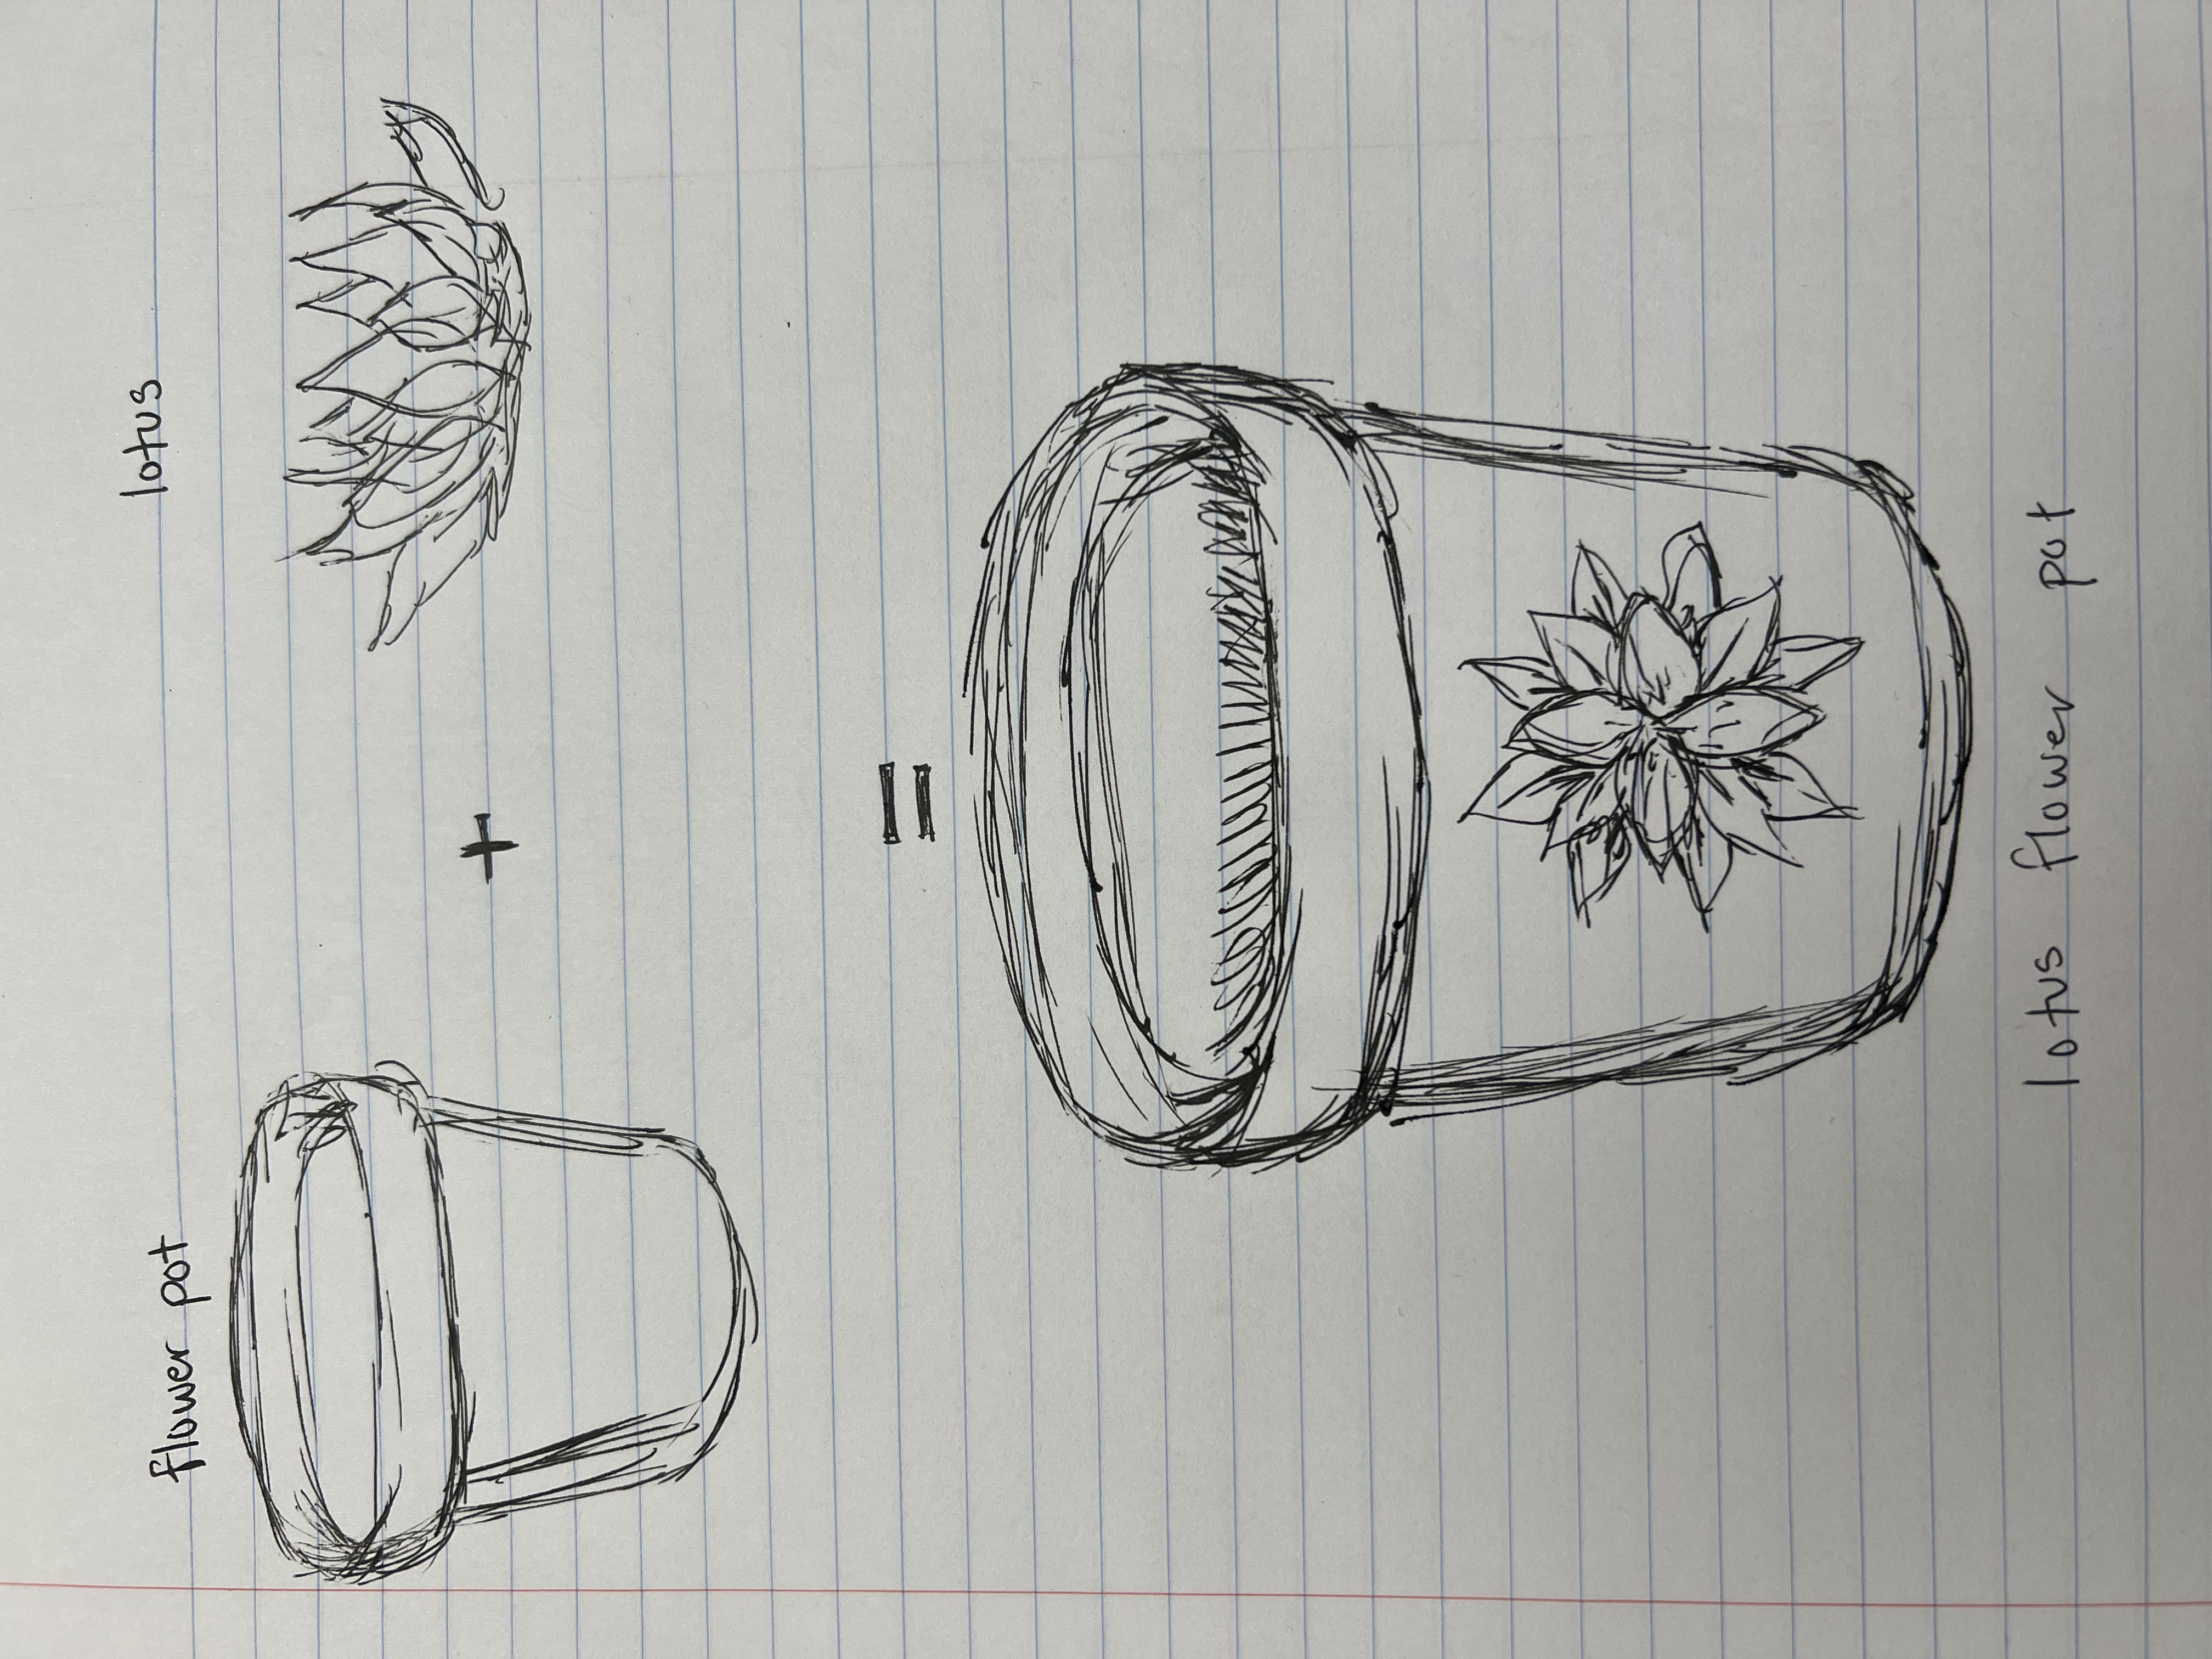 flower pot
lotus
+
=
lotus flower pot